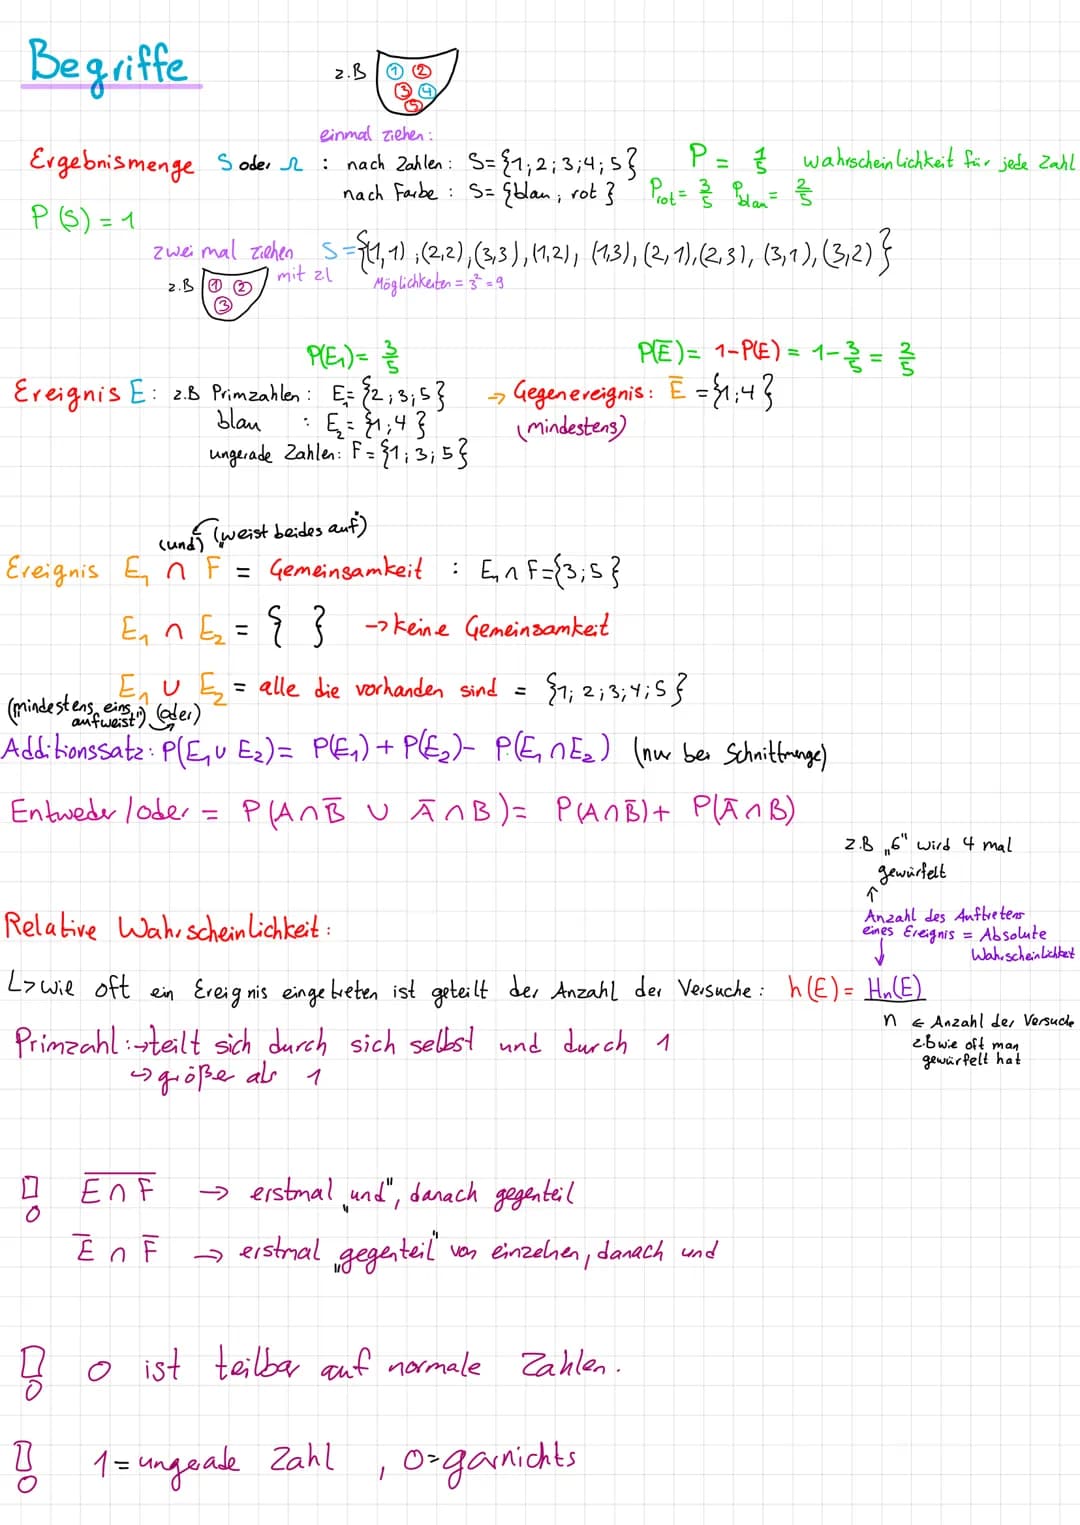 Begriffe
z.B ① ② ③ ④ ⑤
einmal ziehen:
Ergebnismenge S oder Ω : nach Zahlen: S={1;2;3;4;5} P = 1/5 wahrscheinlichkeit für jede Zahl
nach Farbe : S= {blau; rot} Prot = 3/5 Pblau = 2/5
P(S) = 1
zwei mal ziehen S={(1,1),(2,2),(3,3),(1,2),(1,3),(2,1),(2,3),(3,1),(3,2)}
mit zl Möglichkeiten = 3² = 9
z.B ① ② ③
P(E₁)= 3/5 P(E)= 1-P(E) = 1-3/5 = 2/5
Ereignis E: z.B Primzahlen: E₁= {2;3;5} → Gegenereignis: E̅ = {1;4}
blau : E₂= {1;4} (mindestens)
ungerade Zahlen: F={1;3;5}
(und) (weist beides auf)
Ereignis E₁ ∩ F = Gemeinsamkeit : E₁∩F={3;5}
E₁ ∩ E₂ = { } → keine Gemeinsamkeit
E₁ ∪ E₂ = alle die vorhanden sind = {1;2;3;4;5}
(mindestens eins aufweist") (oder)
Additionssatz: P(E₁∪ E₂)= P(E₁)+ P(E₂)- P(E₁∩E₂) (nur bei Schnittmenge)
Entweder/oder = P(A∩B̅ ∪ A̅∩B)= P(A∩B̅)+ P(A̅∩B)
z.B „6" wird 4 mal
gewürfelt
↑
Anzahl des Auftretens
eines Ereignis = Absolute
Wahrscheinlichkeit
↓
Relative Wahrscheinlichkeit:
↳ wie oft ein Ereignis eingetreten ist geteilt der Anzahl der Versuche: h(E)= Hn(E)
n ← Anzahl der Versuche
z.b wie oft man
gewürfelt hat
Primzahl:→teilt sich durch sich selbst und durch 1
↪ größer als 1
! E̅ ̅∩̅ ̅F̅ → erstmal „und", danach gegenteil
E̅ ∩ F̅ → erstmal „gegenteil" von einzelnen, danach und
! 0 ist teilbar auf normale Zahlen.
! 1= ungerade Zahl , 0=garnichts